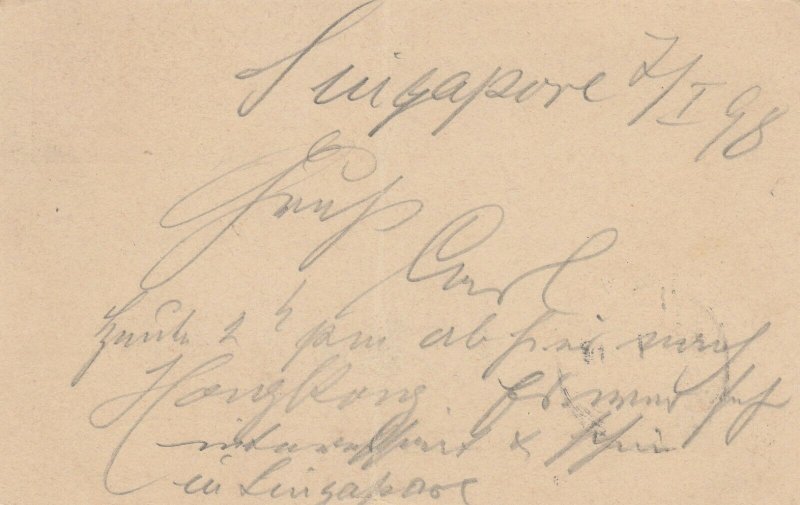 Singapore 7/I 98
Gruß
Carl
Heute 2 h pm ab hier nach
Hongkong Es war sehr
interessant &
in Singapore